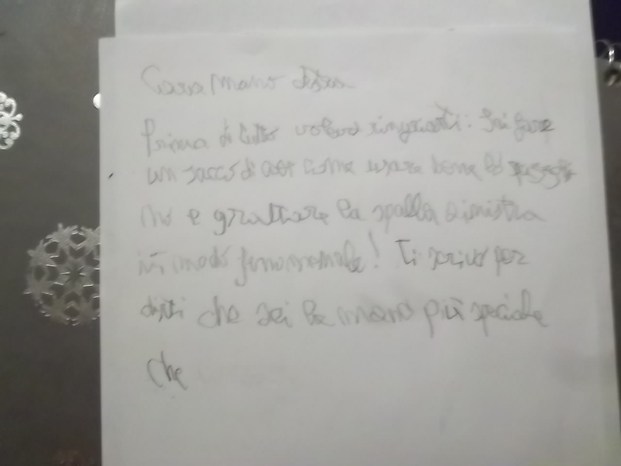 Cara Mano destra
Prima di tutto volevo ringraziarti: Sai fare
un sacco di cose come usare bene lo
che e grattare la spalla sinistra
in modo fenomenale! Ti scrivo per
dirti che sei la mano più speciale
che